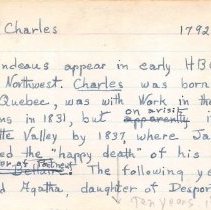 Charles 1792
ndeaus appear in early HBC
Northwest. Charles was born
Quebec, was with Work in th
ns in 1831, but apparently on a visit i
tte Valley by 1837, where Ja
ed the "happy death" of his
or at
The following ye
d Agatha, daughter of Despor
Ten years